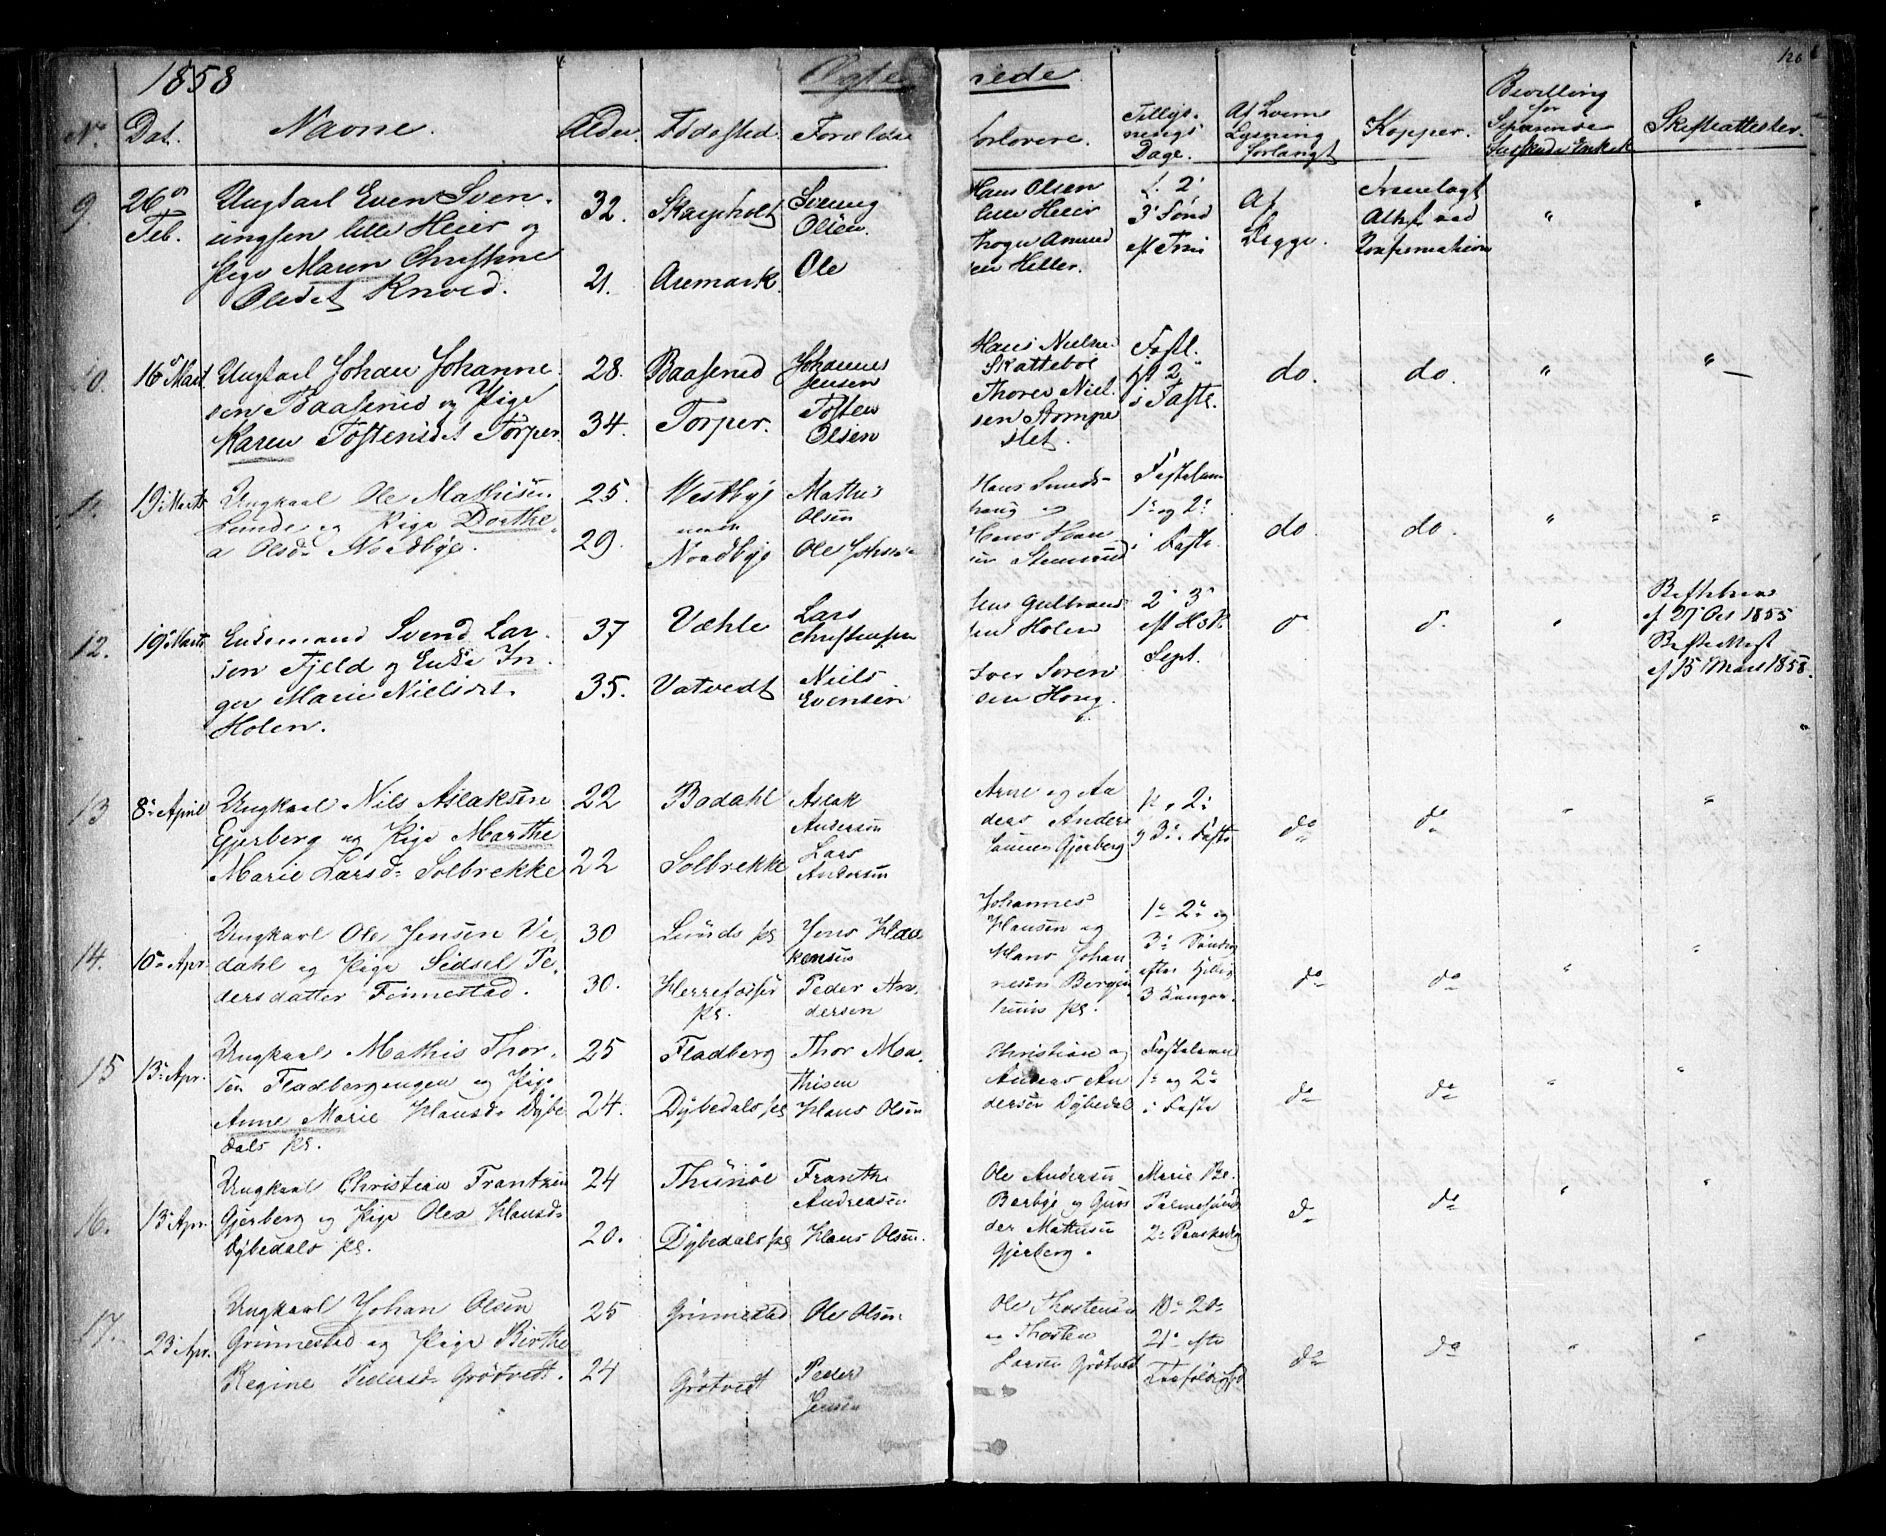 1858 Ægte viede. 126
No. Dat. Navne. Alder. Fødested. Forældre Forlovere. Tillys-
nings
Dage. Af hvem
Lysning
forlangt Kopper. Bevilling
for
Separerede
Fraskilte Enke Skifteattester.
9. 26de
Feb. Ungkarl Even Sven-
ungsen lille Heier og
Pige Maren Christine
Olsdat Knold. 32.
21. Skarpholt
Aremark. Svenung
Olsen.
Ole Hans Olsen
lille Heier
Amund
sen Heller. 2'
3' Sønd
eft Begge. Fremlagt
Attest ved
Konfirmation " "
10. 16 Mart Ungkarl Johan Johanne-
sen Baaserud og Pige
Karen Tostensdat Torper. 28.
34. Baaserud
Torper. Johannes
Jensen
Tosten
Olsen Hans Nielsen
Skattebøe
Thorer Niel-
sen Stompe-
slet. Fastl.
2'
i Faste. do. do. " "
11. 19' Marts Ungkarl Ole Mathisen
Lunde og Pige Dorthe-
a Olsd. Nordbye. 25.
29. Westbye
Nordbye Mathis
Olsen
Ole Hans Smeds-
haug og
Hans Han
sen Stensrud Fastelavn
1' og 2'
i Faste. do. do. " "
12. 19' Marts Enkemand Svend Lar-
sen Fjeld og Enke In-
ger Marie Nielsdat.
Holen. 37
35. Væhle
Vatvedt Lars
Christensen
Niels
Evensen Jens Gulbrand-
sen Holen
Iver Søren
sen Houg. 2' 3'
eft
Sept. do do " Skifteb...
af 27 Oct 1855
Skifteattest
af 15 Marts 1858.
13 8' April Ungkarl Nils Aslaksen
Gjerberg og Pige Marthe
Marie Larsd. Solbrekke 22
22 Bødahl
Solbrekke Aslak
Andersen
Lars
Andersen Arne og An
ders Anders
Gjerberg 2'
og 3' i Faste do do " "
14. 10' Apr. Ungkarl Ole Jensen Ve-
dahl og Pige Sidsel Pe-
dersdatter Finnestad. 30
30. Lunds pl
Herrefosser
pl. Jens Haa
kensen
Peder An-
dersen Johannes
Hansen og
Hans Johan-
nesen Bergen
huus pl. 1' 2' og
3' Søndag
efter Hellig
3 Konger. do do " "
15 13' Apr. Ungkarl Mathis Thor-
sen Fladbergengen og Pige
Anne Marie Hansd. Dybe
dals pl. 25
24. Fladberg
Dybedals pl Thor Ma-
thisen
Hans Olsen Christian og
Anders An
dersen Dybedal Fastelavn
1' og 2'
i Faste do do " "
16. 13' Apr. Ungkarl Christian Frantzen
Gjerberg og Pige Olea Hansd.
Dybedals pl. 24
20. Thunøe
Dybedals pl Frants
Andreasen
Hans Olsen. Ole Andersen
Berbye og Gun
der Mathisen
Gjerberg. Marie Be.
Palmesønd
2' Paaskedag do do " "
17. 23' Apr. Ungkarl Johan Olsen
Grimestad og Pige Birthe
Regine Pedersd. Grötvedt. 25
24 Grimestad
Grötvedt Ole Olsen
Peder
Jensen Ole Thostensen
og Thosten
Larsen Grötvedt 19' 20'
21' efter
do do " "